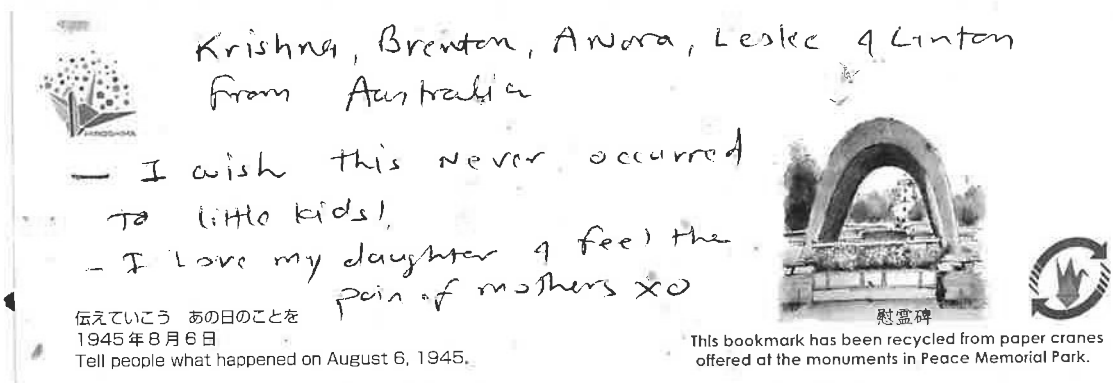 Krishna, Brenton, Anora, Leslee & Linton
from Australia
HIROSHIMA
— I wish this never occurred
to little kids!
- I love my daughter & feel the
pain of mothers xo
伝えていこう あの日のことを
1945年8月6日
Tell people what happened on August 6, 1945.
慰霊碑
This bookmark has been recycled from paper cranes
offered at the monuments in Peace Memorial Park.